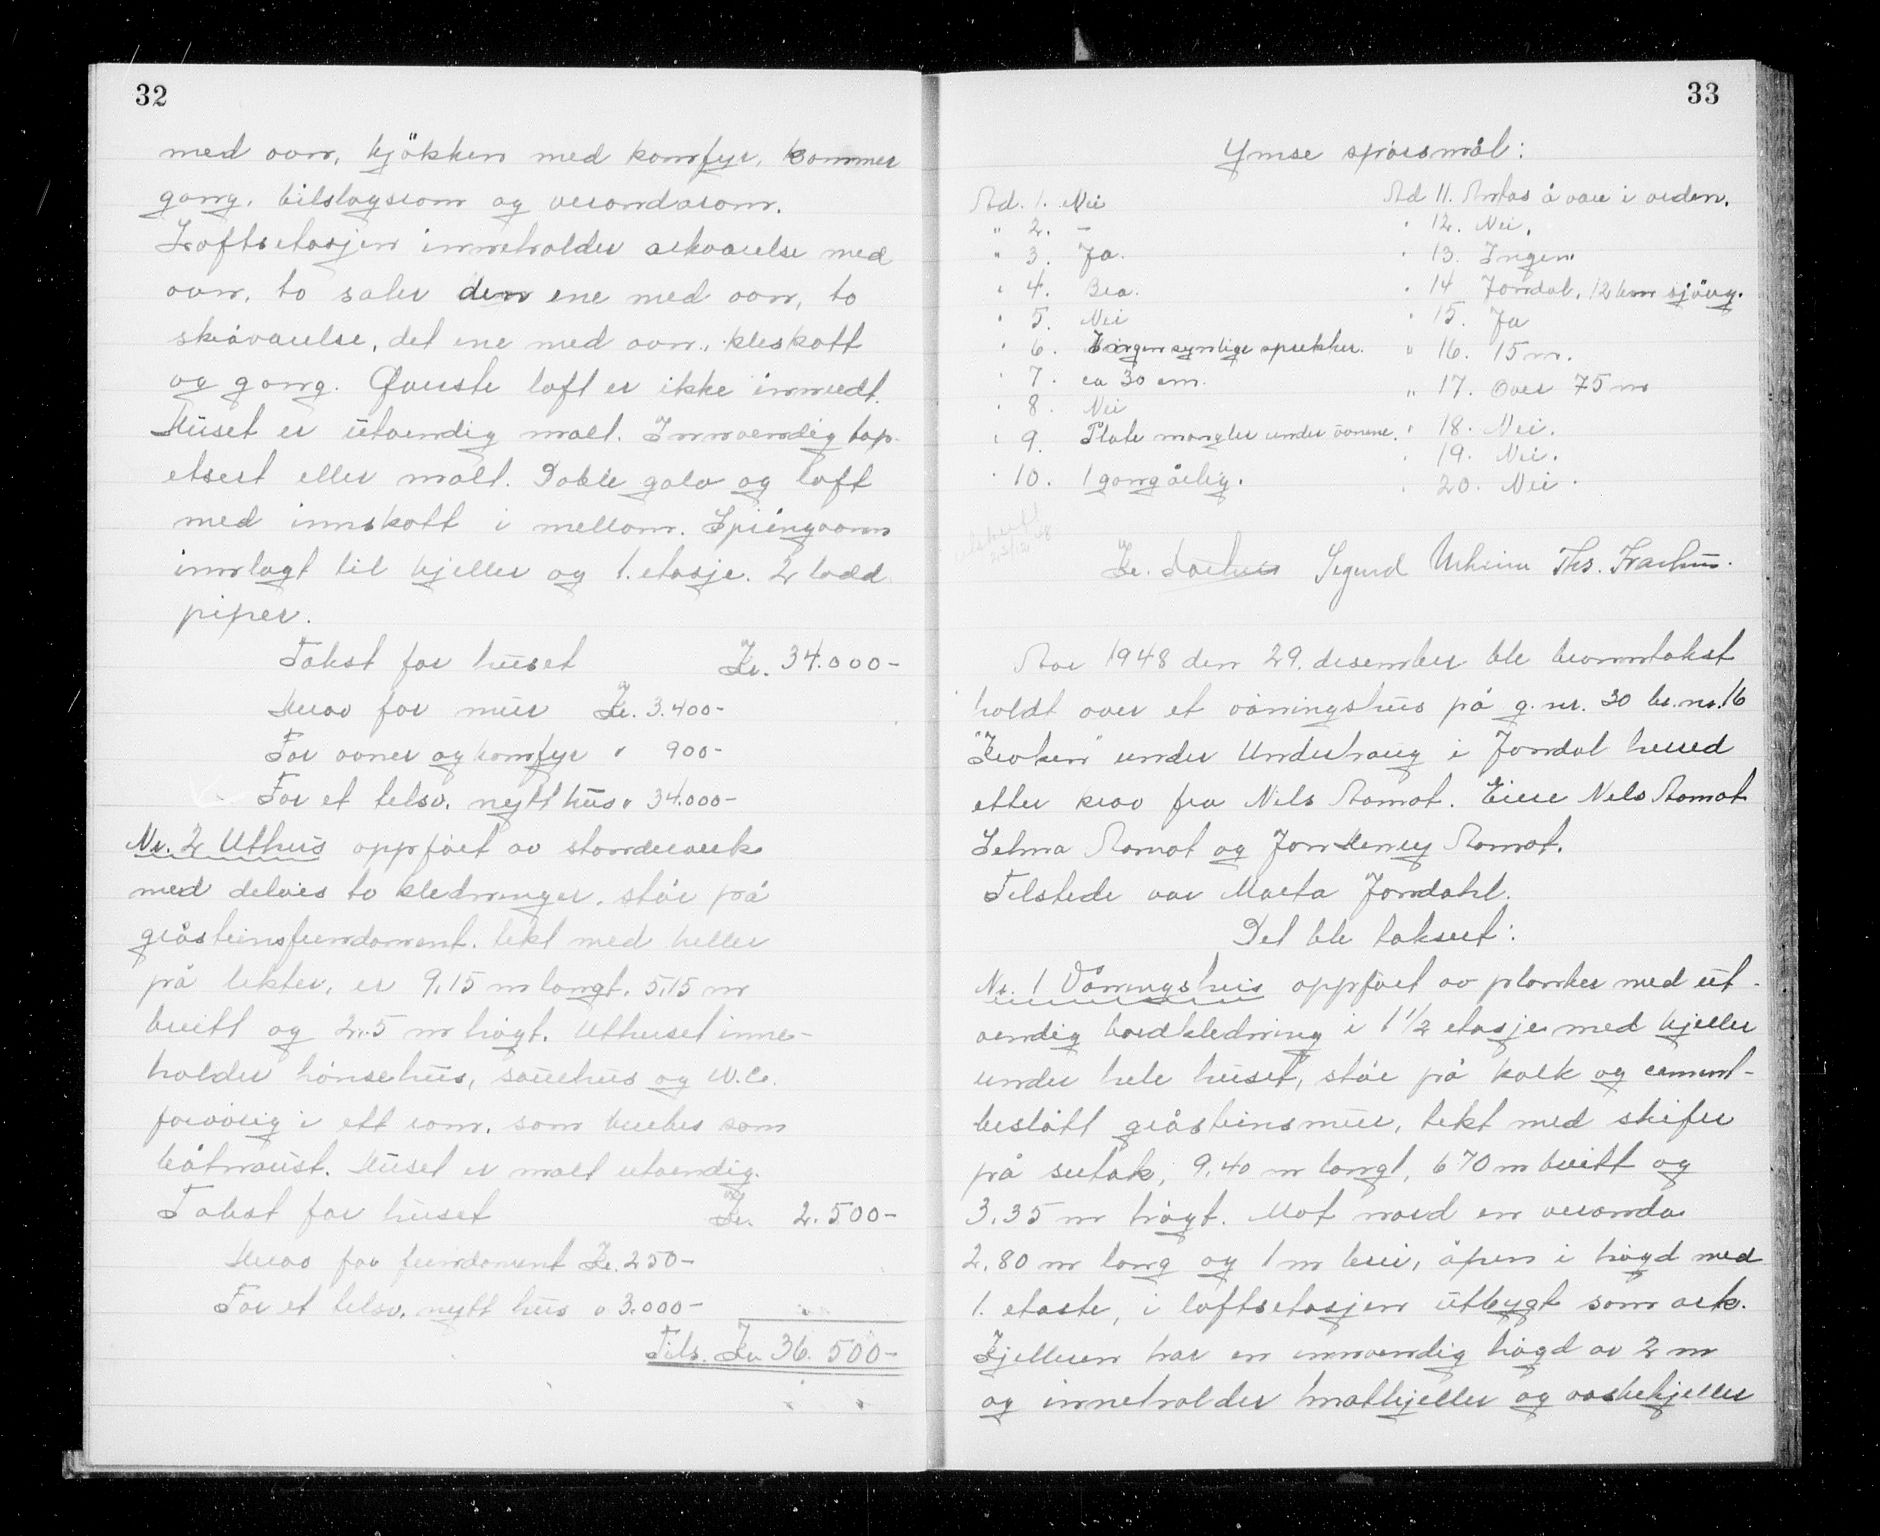 32
med ovn, kjökken med komfyr, kammer
gang, tilslagsrom og verandarom.
Loftsetasjen inneholder arkværelse med
ovn, to saler den ene med ovn, to
skråværelse, det ene med ovn, kleskott
og gang. Øverste loft er ikke innredt.
Huset er utvendig malt. Innvendig tap-
etsert eller malt. Doble golv og loft
med innskott i mellom. Springvann
innlagt til kjeller og 1. etasje. 2 lødd.
piper.
Takst for huset Kr. 34.000-
Herav for mur Kr. 3.400-
For ovner og komfyr " 900-
For et tilsv. nytt hus " 34.000-
Nr. 2 Uthus oppført av stenderverk
med delvis to kledninger, står på
gråsteinsfundament. tekt med heller
på lekter, er 9,15 m langt, 5,15 m
breitt og 2.5 m høgt. Uthuset inne-
holder hönsehus, sauehus og W.C.
forøvrig i ett rom, som brukes som
båtnaust. Huset er malt utvendig.
Takst for huset Kr. 2.500-
Herav for fundament Kr. 250-
For et tilsv. nytt hus " 3.000-
Tils. Kr 36.500-
33
Ymse spörsmål:
Ad. 1. Nei
" 2. -
" 3. Ja.
" 4. Bra.
" 5. Nei
" 6. Ingen synlige sprekker.
" 7. ca 30 cm.
" 8. Nei
" 9. Plate mangler under ovnene.
" 10. 1 gang årlig.
Ad 11. Antas å være i orden.
" 12. Nei.
" 13. Ingen
" 14 Jondal, 12 km sjöveg.
" 15. Ja
" 16. 15 m.
" 17. Over 75 m
" 18. Nei.
" 19. Nei.
" 20. Nei.
utskrift
Sigurd Urheim Ths.
Aar 1948 den 29. desember ble branntakst
holdt over et våningshus på g.nr. 30 br.nr. 16
"Kroken" under Underhaug i Jondal herred
etter krav fra Nils Aamot. Eiere Nils Aamot
Selma Aamot og Jon Henry Aamot.
Tilstede var Marta Jondahl.
Det ble taksert:
Nr. 1 Våningshus oppført av planker med ut-
vendig bordkledning i 1 1/2 etasje med kjeller
under hele huset, står på kalk og cement-
beslått gråsteinsmur, tekt med skifer
på sutak, 9,40 m langt, 6 70 m breitt og
3,35 m högt. Mot nord en veranda
2,80 m lang og 1 m brei, åpen i högd med
1. etaste, i loftsetasjen utbygt som ark.
Kjelleren har en innvendig högd av 2 m
og inneholder matkjeller og vaskekjeller